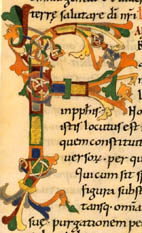 terrę salutare di nri
inpphis· No
istis locutus est
quem constituit
uersorꝫ· per qu
Qui cum sit s
figura subst
tansq; omnia
suę· purgationem pe